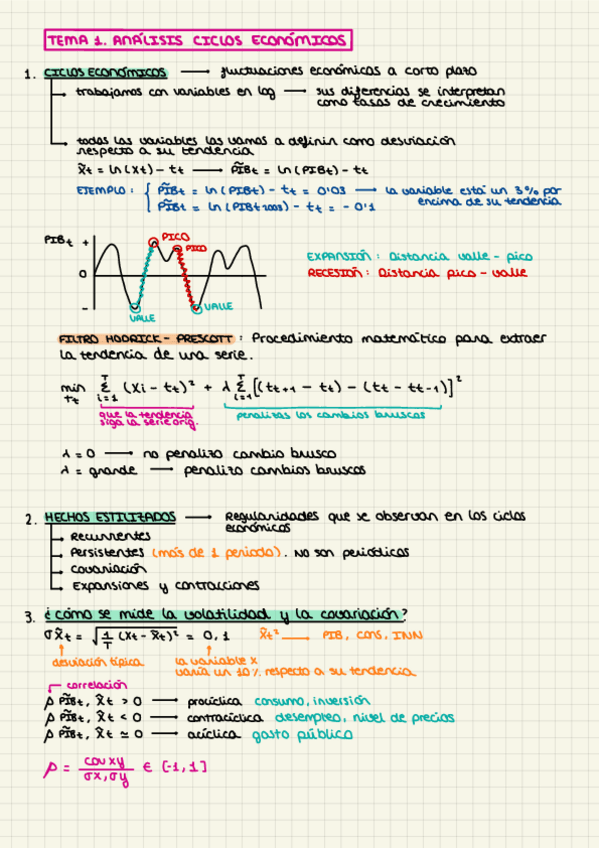 TEMA 1. ANÁLISIS CICLOS ECONÓMICOS
1. CICLOS ECONÓMICOS → fluctuaciones económicas a corto plazo
trabajamos con variables en log → sus diferencias se interpretan
como tasas de crecimiento
todas las variables las vamos a definir como desviación
respecto a su tendencia
x̃t = ln(xt) - tt → PĨBt = ln(PIBt) - tt
EJEMPLO: { PĨBt = ln(PIBt) - tt = 0'03 → la variable está un 3% por
encima de su tendencia
PĨBt = ln(PIBt2003) - tt = - 0'1
PIBt +
0
-
PICO
PICO
VALLE
VALLE
EXPANSIÓN: Distancia valle - pico
RECESIÓN: Distancia pico - valle
FILTRO HODRICK - PRESCOTT: Procedimiento matemático para extraer
la tendencia de una serie.
min tt Σ T i=1 (xi - tt)² + λ Σ T i=1 [(tt+1 - tt) - (tt - tt-1)]²
que la tendencia
siga la serie orig.
penalizas los cambios bruscos
λ = 0 → no penalizo cambio brusco
λ = grande → penalizo cambios bruscos
2. HECHOS ESTILIZADOS → Regularidades que se observan en los ciclos
económicos
Recurrentes
Persistentes (más de 1 periodo). No son periódicos
covariación
Expansiones y contracciones
3. ¿cómo se mide la volatilidad y la covariación?
σx̃t = √ 1/T (xt - x̄t)² = 0,1 x̃t² → PIB, CONS, INN
desviación típica
la variable x
varía un 10% respecto a su tendencia
correlación
ρ PĨBt, x̃t > 0 → procíclica consumo, inversión
ρ PĨBt, x̃t < 0 → contracíclica desempleo, nivel de precios
ρ PĨBt, x̃t ≃ 0 → acíclica gasto público
ρ = cov xy / σx, σy ∈ [-1, 1]